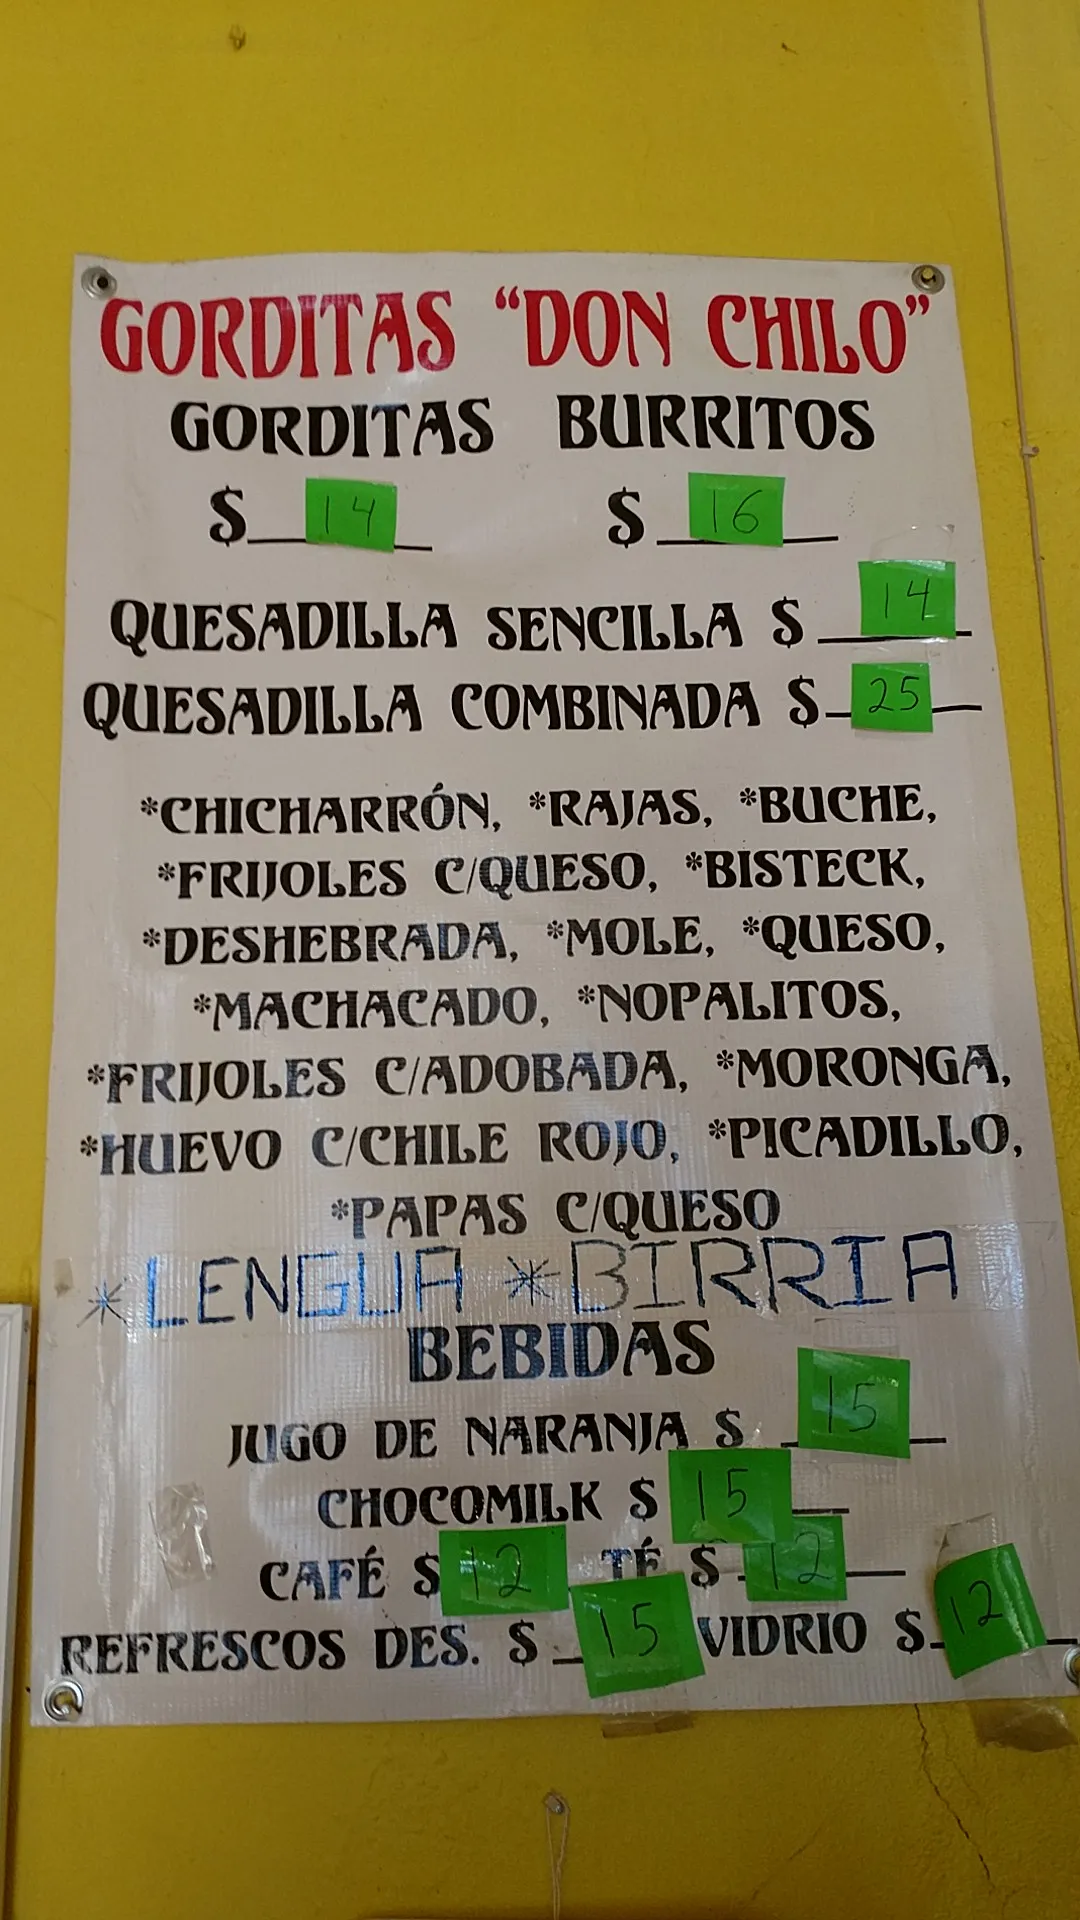 GORDITAS “DON CHILO”
GORDITAS BURRITOS
$ 14 $ 16
QUESADILLA SENCILLA $ 14
QUESADILLA COMBINADA $ 25
*CHICHARRÓN, *RAJAS, *BUCHE,
*FRIJOLES C/QUESO, *BISTECK,
*DESHEBRADA, *MOLE, *QUESO,
*MACHACADO, *NOPALITOS,
*FRIJOLES C/ADOBADA, *MORONGA,
*HUEVO C/CHILE ROJO, *PICADILLO,
*PAPAS C/QUESO
*LENGUA *BIRRIA
BEBIDAS
JUGO DE NARANJA $ 15
CHOCOMILK $ 15
CAFÉ $ 12 TÉ $ 12
REFRESCOS DES. $ 15 VIDRIO $ 12